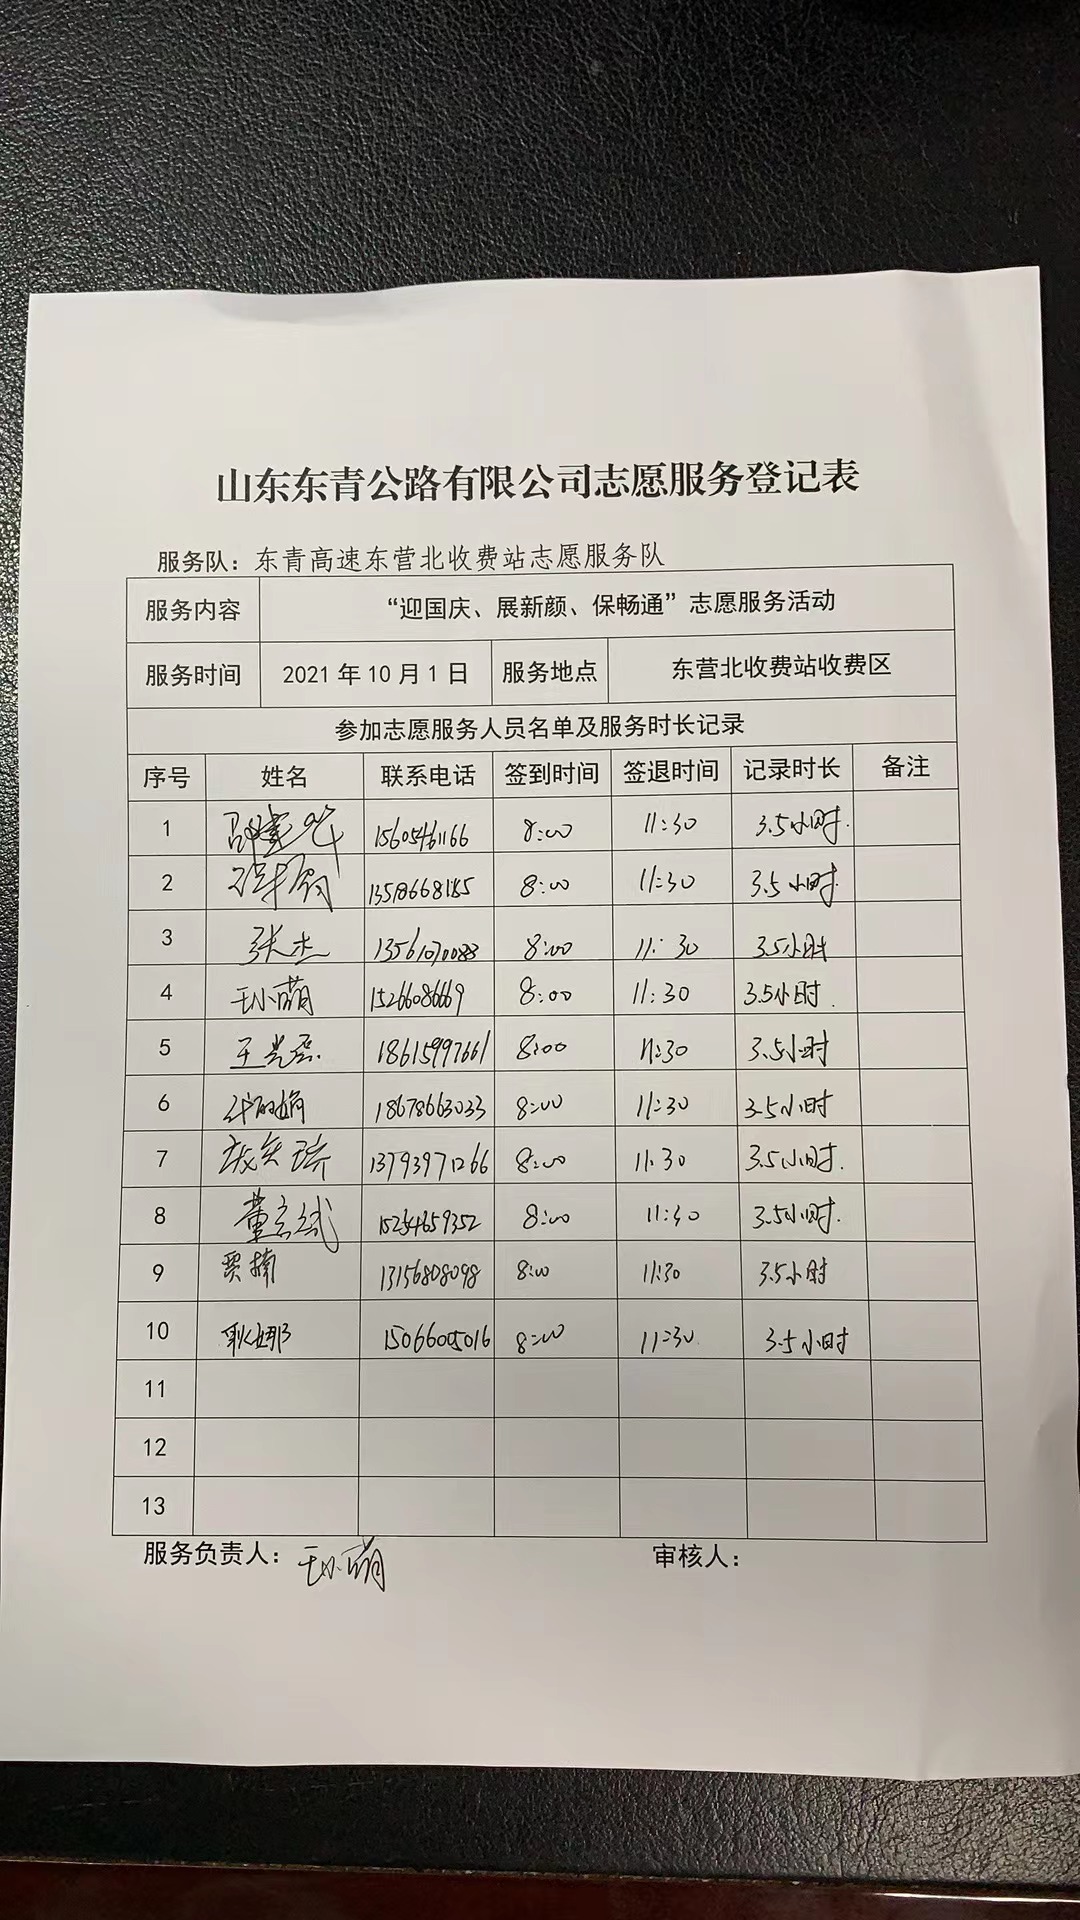 山东东青公路有限公司志愿服务登记表
服务队：东青高速东营北收费站志愿服务队
服务内容 “迎国庆、展新颜、保畅通”志愿服务活动
服务时间 2021年10月1日 服务地点 东营北收费站收费区
参加志愿服务人员名单及服务时长记录
序号 姓名 联系电话 签到时间 签退时间 记录时长 备注
1 15605461166 8:00 11:30 3.5小时.
2 8:00 11:30 3.5小时.
3 张杰 8:00 11:30 3.5小时
4 王小萌 15266086669 8:00 11:30 3.5小时.
5 王光磊 18615997661 8:00 11:30 3.5小时
6 18678663033 8:00 11:30 3.5小时
7 13793971266 8:00 11:30 3.5小时.
8 15254659352 8:00 11:30 3.5小时.
9 贾楠 13156808098 8:00 11:30 3.5小时
10 耿娜 15066005016 8:00 11:30 3.5小时
11
12
13
服务负责人：王小萌 审核人：